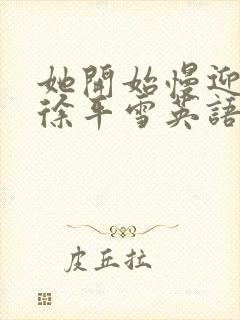 她開始慢迎
徐年雪英語
皮丘拉